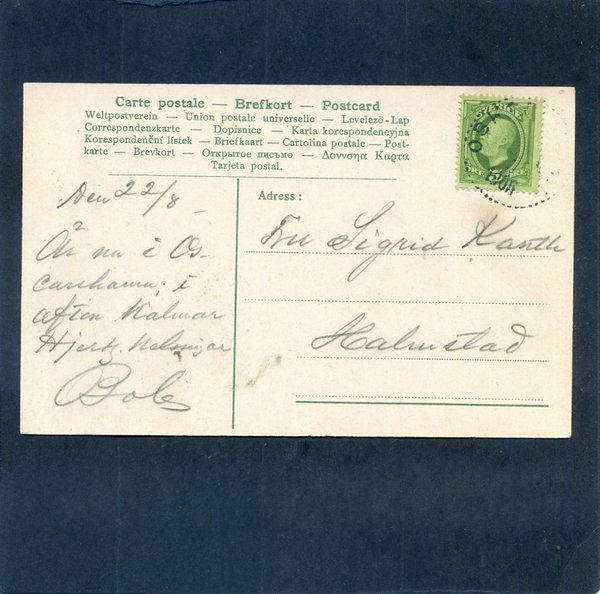 Carte postale — Brefkort — Postcard
Weltpostverein — Union postale universelle — Levelező-Lap
Correspondenzkarte — Dopisnice — Karta korespondencyjna
Korespondenční lístek — Briefkaart — Cartolina postale — Post-
karte — Brevkort — Открытое письмо — Δουνσηα Καρτα
Tarjeta postal.
SVERIGE
ÖRE
Den 22/8
Är nu i Os-
carshamn, i
afton Kalmar
Hjertl. Helsningar
Adress :
Fru Sigrid Kanth
Halmstad